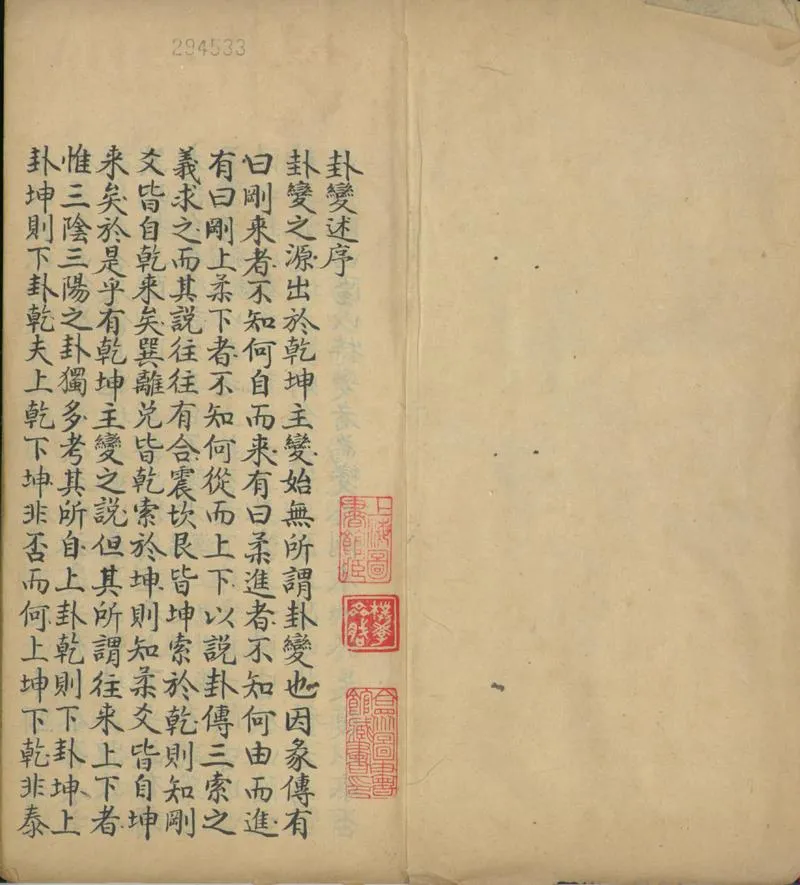 294533
卦變述序
卦變之源出於乾坤主變始無所謂卦變也因彖傳有
曰剛来者不知何自而来有曰柔進者不知何由而進
有曰剛上柔下者不知何從而上下以說卦傳三索之
義求之而其説往往有合震坎艮皆坤索於乾則知剛
爻皆自乾来矣巽離兌皆乾索於坤則知柔爻皆自坤
来矣於是乎有乾坤主變之説但其所謂往来上下者
惟三陰三陽之卦獨多考其所自上卦乾則下卦坤上
卦坤則下卦乾夫上乾下坤非否而何上坤下乾非泰
上海圖書館藏